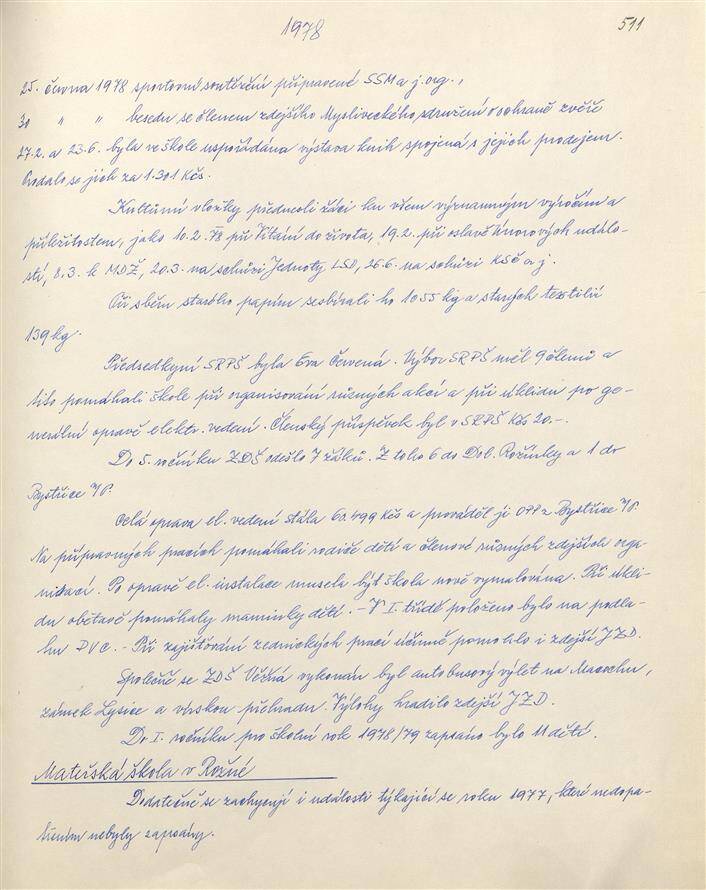 1978
511
25. června 1978 sportovní soutěžení připravené SSM a j. org.,
30 " " besedu se členem zdejšího Mysliveckého sdružení o ochraně zvěře
27.2. a 23.6. byla ve škole uspořádána výstava knih spojená s jejich prodejem.
Prodalo se jich za 1.301 Kčs.
Kulturní vložky předvedli žáci ku všem významným výročím a
příležitostem, jako 10.2. 78 při Vítání do života, 19.2. při oslavě únorových událo-
stí, 8.3. k MDŽ, 20.3. na schůzi Jednoty LSD, 26.6. na schůzi KSČ a j.
Při sběru starého papíru sesbírali ho 1055 kg a starých textilií
139 kg.
Předsedkyní SRPŠ byla Eva Červená. Výbor SRPŠ měl 9 členů a
tito pomáhali škole při organisování různých akcí a při úklidu po ge-
nerální opravě elektr. vedení. Členský příspěvek byl v SRPŠ Kčs 20.-.
Do 5. ročníku ZDŠ odešlo 7 žáků. Z toho 6 do Dol. Rožínky a 1 do
Bystřice n/P.
Celá oprava el. vedení stála 60.499 Kčs a prováděl ji OPP z Bystřice n/P.
Na přípravných pracích pomáhali rodiče dětí a členové různých zdejších orga-
nisací. Po opravě el. instalace musela být škola nově vymalována. Při úkli-
du obětavě pomáhaly maminky dětí. - V I. třídě položeno bylo na podla-
hu PVC. - Při zajišťování zednických prací účinně pomohlo i zdejší JZD.
Společně se ZDŠ Věžná vykonán byl autobusový výlet na Macochu,
zámek Lysice a vírskou přehradu. Výlohy hradilo zdejší JZD.
Do I. ročníku pro školní rok 1978/79 zapsáno bylo 11 dětí.
Mateřská škola v Rožné
Dodatečně se zachycují i události týkající se roku 1977, které nedopa-
třením nebyly zapsány.